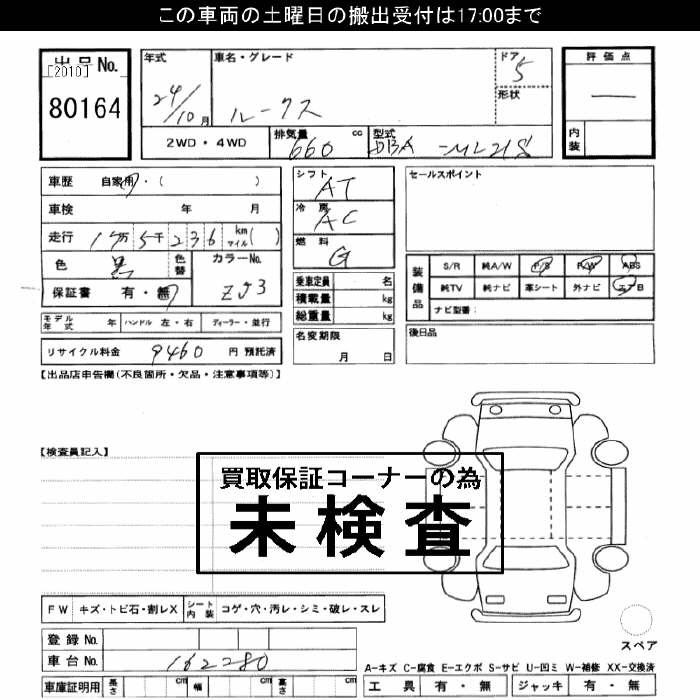 この車両の土曜日の搬出受付は17:00まで
出品No.
[2010]
80164
年式
24/10月
車名・グレード
ルークス
ドア
5
形状
評価点
―
内装
2WD・4WD
排気量
660 cc
型式
DBA-ML21S
車歴 自家用・( )
車検 年 月
走行 17万5千236 km マイル( )
色 黒 色替
カラーNo.
ZJ3
保証書 有・無
モデル年式 年 ハンドル 左・右 ディーラー・並行
リサイクル料金 9460 円 預託済
シフト
AT
冷房
AC
燃料
G
乗車定員 名
積載量 kg
総重量 kg
名変期限
月 日
セールスポイント
装備品
S/R 純A/W P/S P/W ABS
純TV 純ナビ 革シート 外ナビ エアB
ナビ型番:
後日品
【出品店申告欄(不良箇所・欠品・注意事項等)】
【検査員記入】
買取保証コーナーの為
未検査
FW キズ・トビ石・割レX シート内装 コゲ・穴・汚レ・シミ・破レ・スレ
登録No.
車台No. 162280
車庫証明用 長さ cm 幅 cm 高さ cm
スペア
A-キズ C-腐食 E-エクボ S-サビ U-凹ミ W-補修 XX-交換済
工具 有・無 ジャッキ 有・無